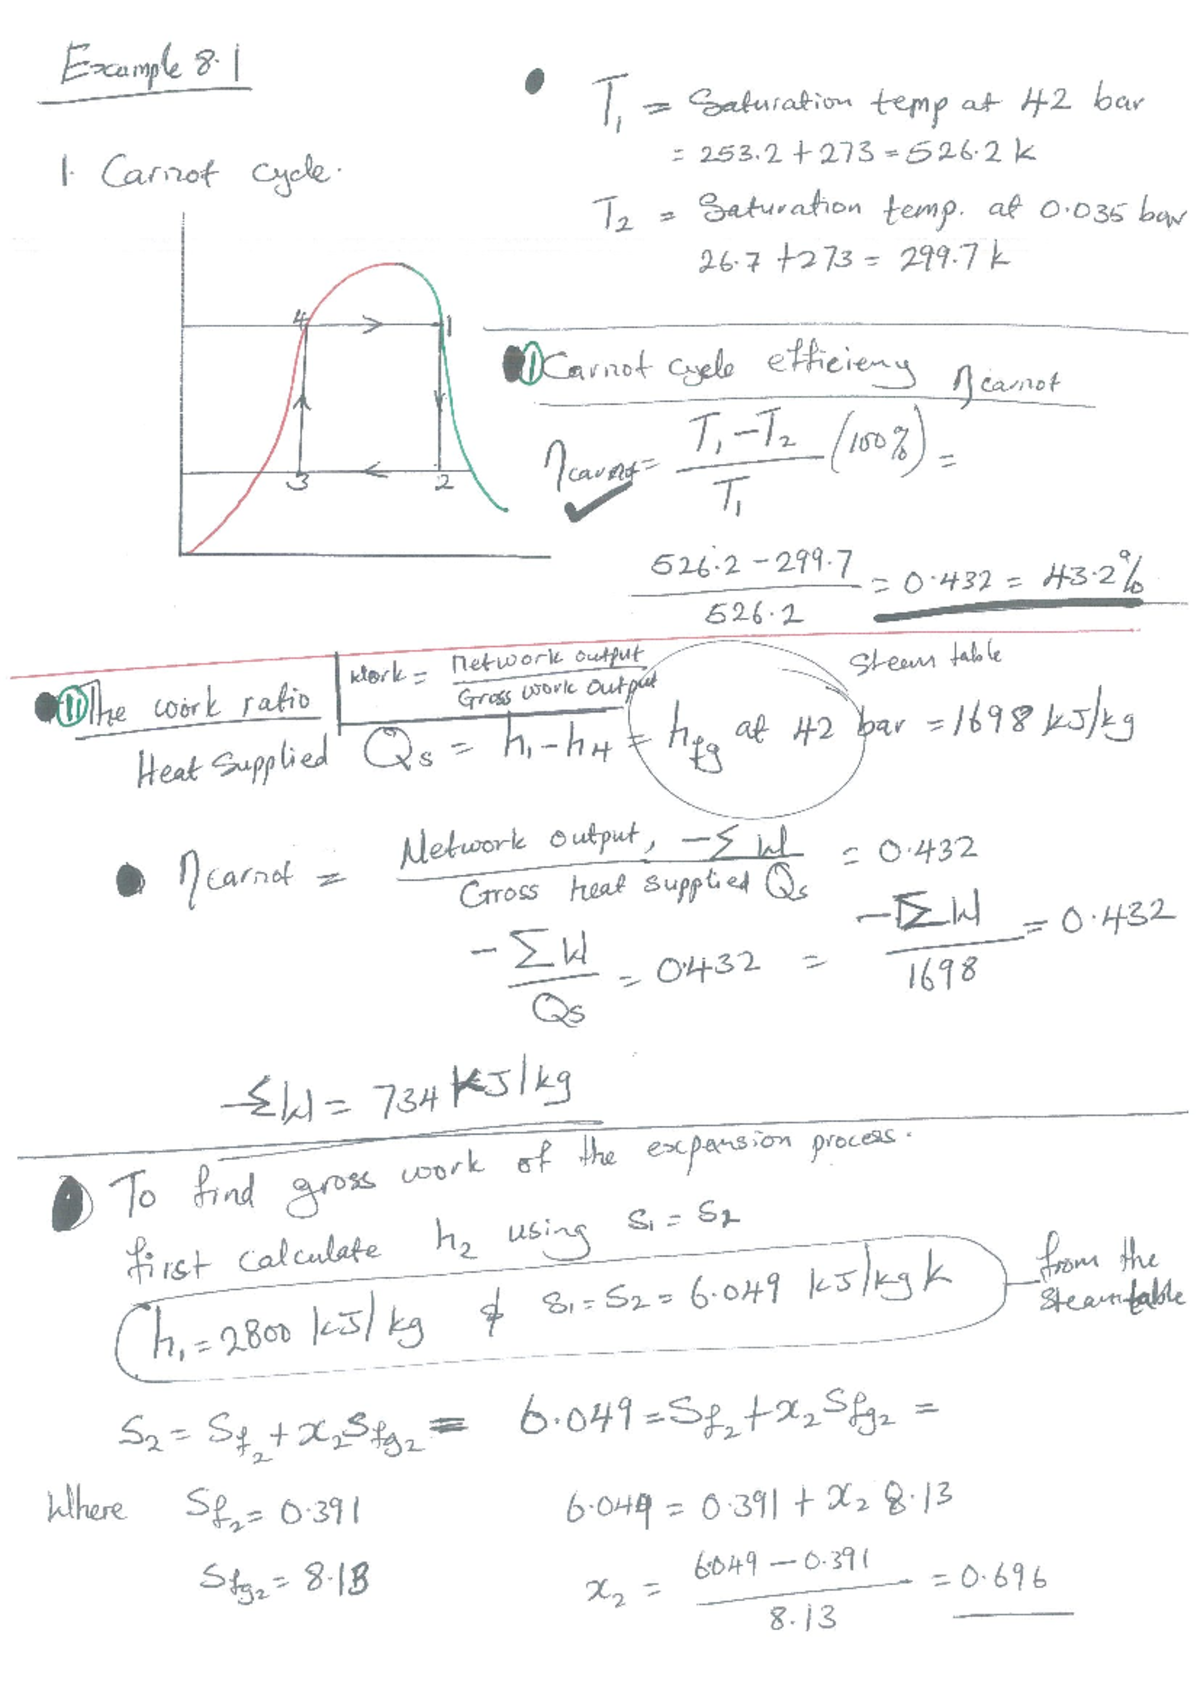 Example 8.1
1. Carnot cycle.
4
1
3
2
T₁ = Saturation temp at 42 bar
= 253.2 + 273 = 526.2 k
T₂ = Saturation temp. at 0.035 bar
26.7 + 273 = 299.7 k
① Carnot cycle efficieny η carnot
η carnot = (T₁ - T₂)/T₁ (100%) =
(526.2 - 299.7)/526.2 = 0.432 = 43.2%
⑪ The work ratio
Work = Network output / Gross work output
Steam table
Heat Supplied Qs = h₁ - h₄ = hfg at 42 bar = 1698 kJ/kg
η carnot = Network output, -ΣW / Gross heat supplied Qs = 0.432
-ΣW/Qs = 0.432 = -ΣW/1698 = 0.432
-ΣW = 734 kJ/kg
To find gross work of the expansion process.
first calculate h₂ using s₁ = s₂
h₁ = 2800 kJ/kg & s₁ = s₂ = 6.049 kJ/kg k
from the
steam table
S₂ = Sf₂ + x₂Sfg₂ = 6.049 = Sf₂ + x₂Sfg₂ =
Where Sf₂ = 0.391
6.049 = 0.391 + x₂ 8.13
Sfg₂ = 8.13
x₂ = (6.049 - 0.391)/8.13 = 0.696